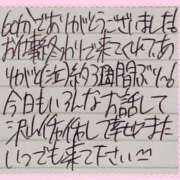 60分でおりがとうございました
お仕事終わりで来てくれてあ
りがとう(注)約3週間ぶりの
今日もいろんな方話して
沢山イチャイチャして幸せまた
いつでも来て下さい